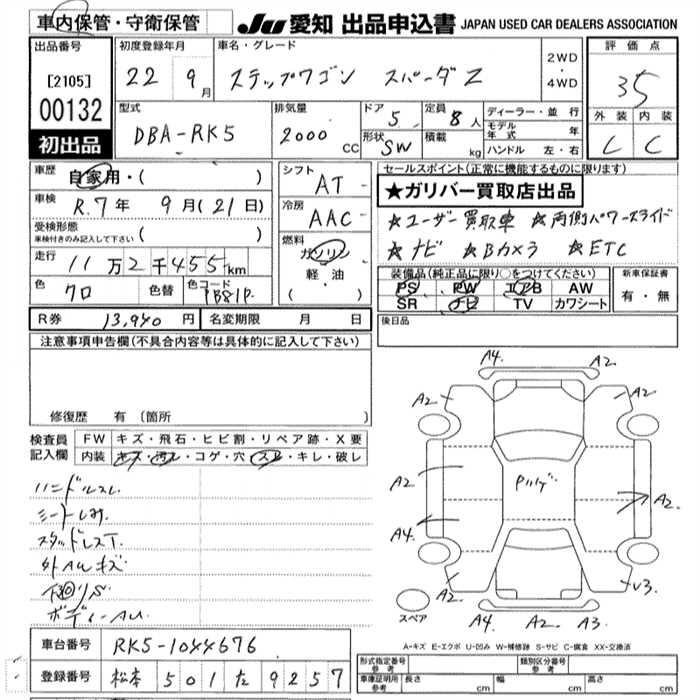 車内保管・守衛保管
JU 愛知 出品申込書 JAPAN USED CAR DEALERS ASSOCIATION
出品番号
[2105]
00132
初出品
初度登録年月
22 9月
車名・グレード
ステップワゴン スパーダZ
2WD
・
4WD
評価点
35
外装 内装
C C
型式
DBA-RK5
排気量
2000 cc
ドア 5
形状 SW
定員 8人
積載 kg
ディーラー・並行
モデル年式 年
ハンドル 左・右
車歴
自家用・( )
車検
R.7年 9月(21日)
受検形態
車検付きのみ記入して下さい ( )
走行
11万2千455km
色 クロ
色替
色コード PB81P
シフト
AT
冷房
AAC
燃料
ガソリン
軽・油
( )
セールスポイント(正常に機能するものに限ります)
★ガリバー買取店出品
☆ユーザー買取車 ☆両側パワースライド
☆ナビ ☆Bカメラ ☆ETC
装備品(純正品に限り○をつけてください)
PS PW エアB AW
SR ナビ TV カワシート
新車保証書
有・無
後日品
R券 13,940円
名変期限 月 日
注意事項申告欄(不具合内容等は具体的に記入して下さい)
修復歴 有 (箇所
検査員記入欄
FW キズ・飛石・ヒビ割・リペア跡・X要
内装 キズ・汚レ・コゲ・穴・スレ・キレ・破レ
ハンドルスレ
シートしみ
スタッドレスT.
外AWキズ
下回りS
A4. A2
A2 A2
A2 A2
A4.
A2 √3.
A4 A2 A3
スペア
A-キズ E-エクボ U-凹み W-補修跡 S-サビ C-腐食 XX-交換済
車台番号 RK5-1044676
登録番号 松本 501 た 9257
形式指定番号 参考
類別区分番号 参考
車庫証明用 参考
長さ cm 幅 cm 高さ cm